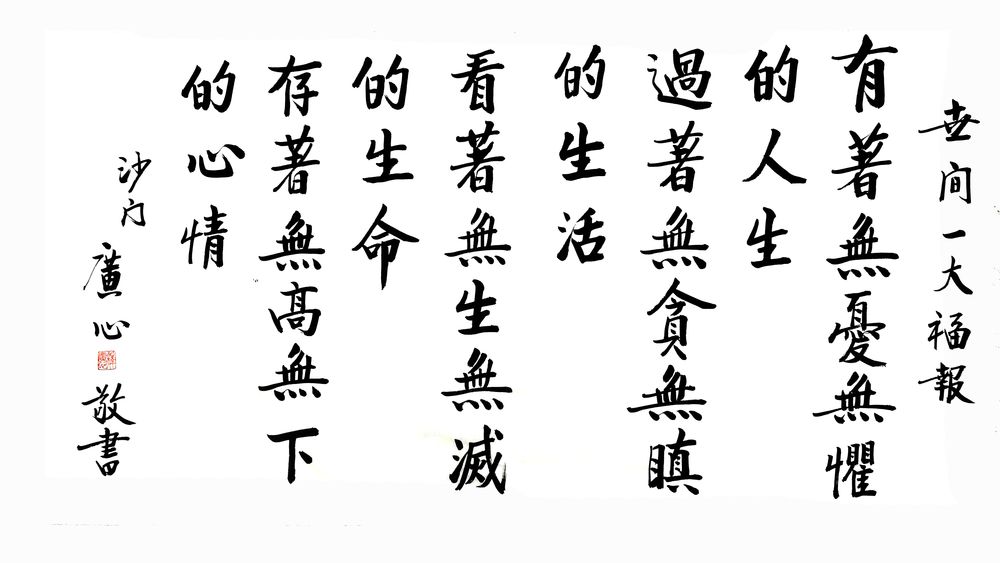 世间一大福報
有著無憂無懼
的人生
過著無貪無瞋
的生活
看著無生無滅
的生命
存著無高無下
的心情
沙门廣心敬書